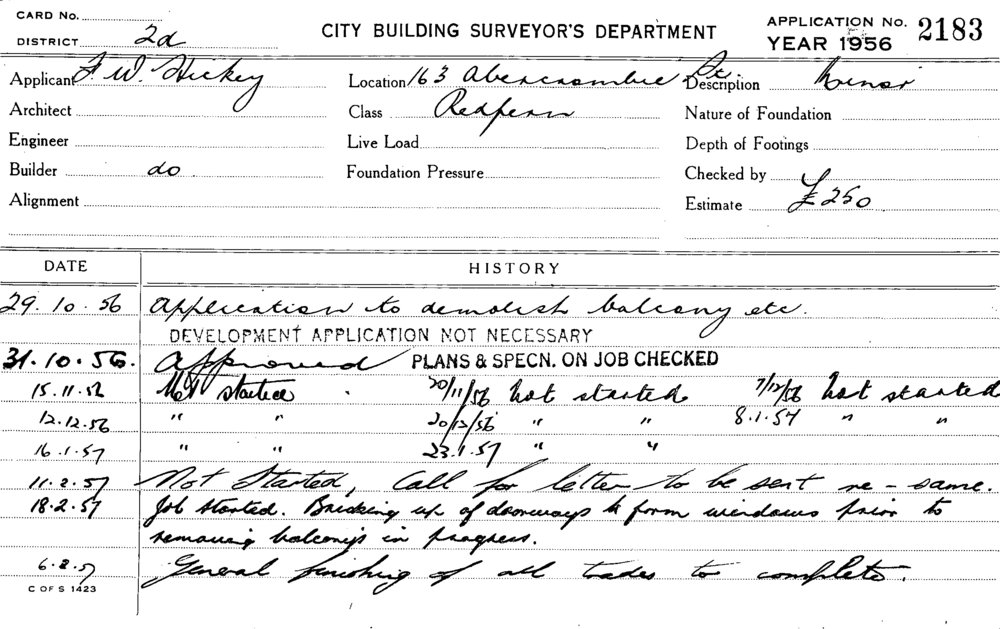 CARD No.
DISTRICT 2d
CITY BUILDING SURVEYOR'S DEPARTMENT
APPLICATION No. 2183
YEAR 1956
Applicant F. W. Hickey Location 163 Abercrombie St. Description Minor
Architect Class Redfern Nature of Foundation
Engineer Live Load Depth of Footings
Builder do Foundation Pressure Checked by
Alignment Estimate £250
DATE HISTORY
29.10.56 Application to demolish balcony etc.
DEVELOPMENT APPLICATION NOT NECESSARY
31.10.56. Approved PLANS & SPECN. ON JOB CHECKED
15.11.56 Not started. 20/11/56 Not started 7/12/56 Not started
12.12.56 " " 20/12/56 " " 8.1.57 " "
16.1.57 " " 23.1.57 " "
11.2.57 Not Started, Call for letter to be sent re-same.
18.2.57 Job started. Bricking up of doorways to form windows prior to
removing balcony's in progress.
6.8.57 General finishing of all trades to complete.
C OF S 1423